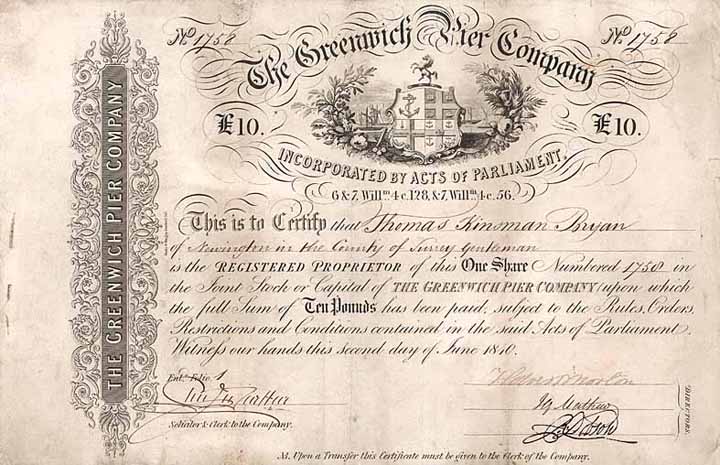 No. 1758
No. 1758
The Greenwich Pier Company
£10.
£10.
INCORPORATED BY ACTS OF PARLIAMENT,
6 & 7, Willm. 4 c. 128, & 7, Willm. 4 c. 56.
THE GREENWICH PIER COMPANY
This is to Certify that Thomas Kinsman Bryan
of Newington in the County of Surrey Gentleman
is the REGISTERED PROPRIETOR of this One Share Numbered 1758 in
the Joint Stock or Capital of THE GREENWICH PIER COMPANY (upon which
the full Sum of Ten Pounds has been paid, subject to the Rules, Orders,
Restrictions and Conditions contained in the said Acts of Parliament.
Witness our hands this second day of June 1840.
Entd. Folio 1
Solicitor & Clerk to the Company.
DIRECTORS.
N. Upon a Transfer this Certificate must be given to the Clerk of the Company.